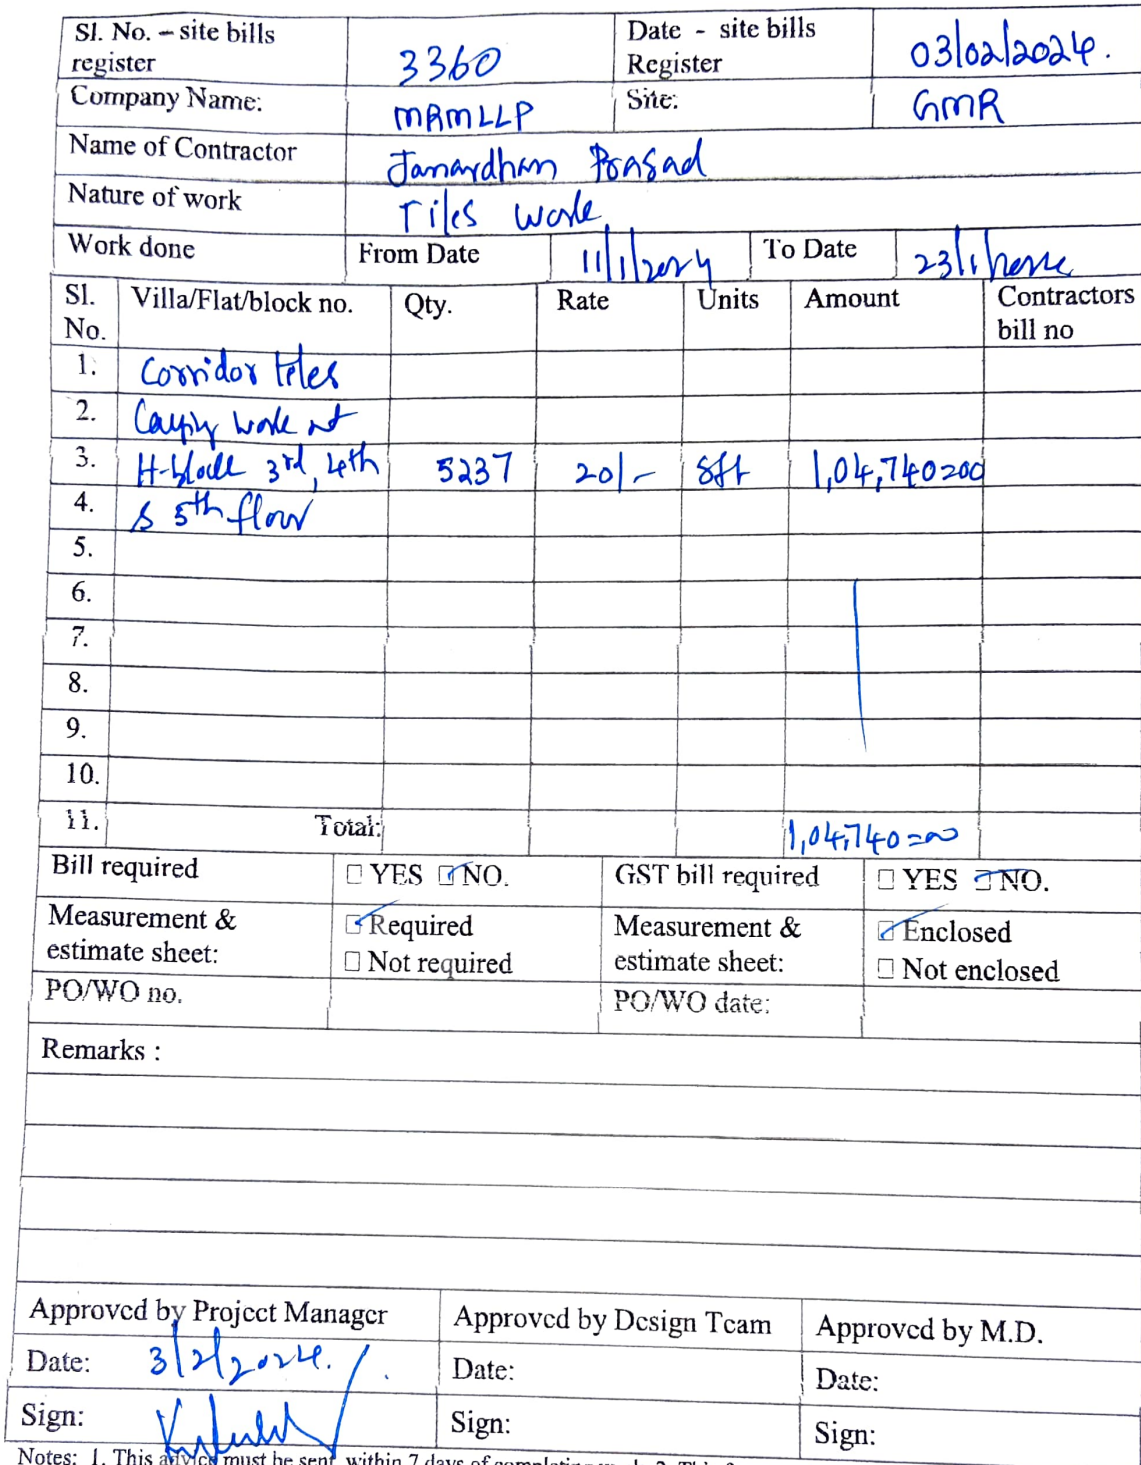 Sl. No. – site bills register 3360 Date - site bills Register 03/02/2024.
Company Name: MRMLLP Site: GMR
Name of Contractor Janardhan Prasad
Nature of work Tiles work
Work done From Date 11/1/2024 To Date 23/1/2024
Sl. No. Villa/Flat/block no. Qty. Rate Units Amount Contractors bill no
1. Corridor tiles
2. Laying work at
3. H-block 3rd, 4th 5237 20/- sft 1,04,740=00
4. & 5th floor
5.
6.
7.
8.
9.
10.
11. Total: 1,04,740=00
Bill required ☐ YES ☑ NO. GST bill required ☐ YES ☑ NO.
Measurement & estimate sheet: ☑ Required Measurement & estimate sheet: ☑ Enclosed
☐ Not required ☐ Not enclosed
PO/WO no. PO/WO date:
Remarks :
Approved by Project Manager Approved by Design Team Approved by M.D.
Date: 3/2/2024. Date: Date:
Sign: Sign: Sign:
Notes: 1. This advice must be sent within 7 days of completing